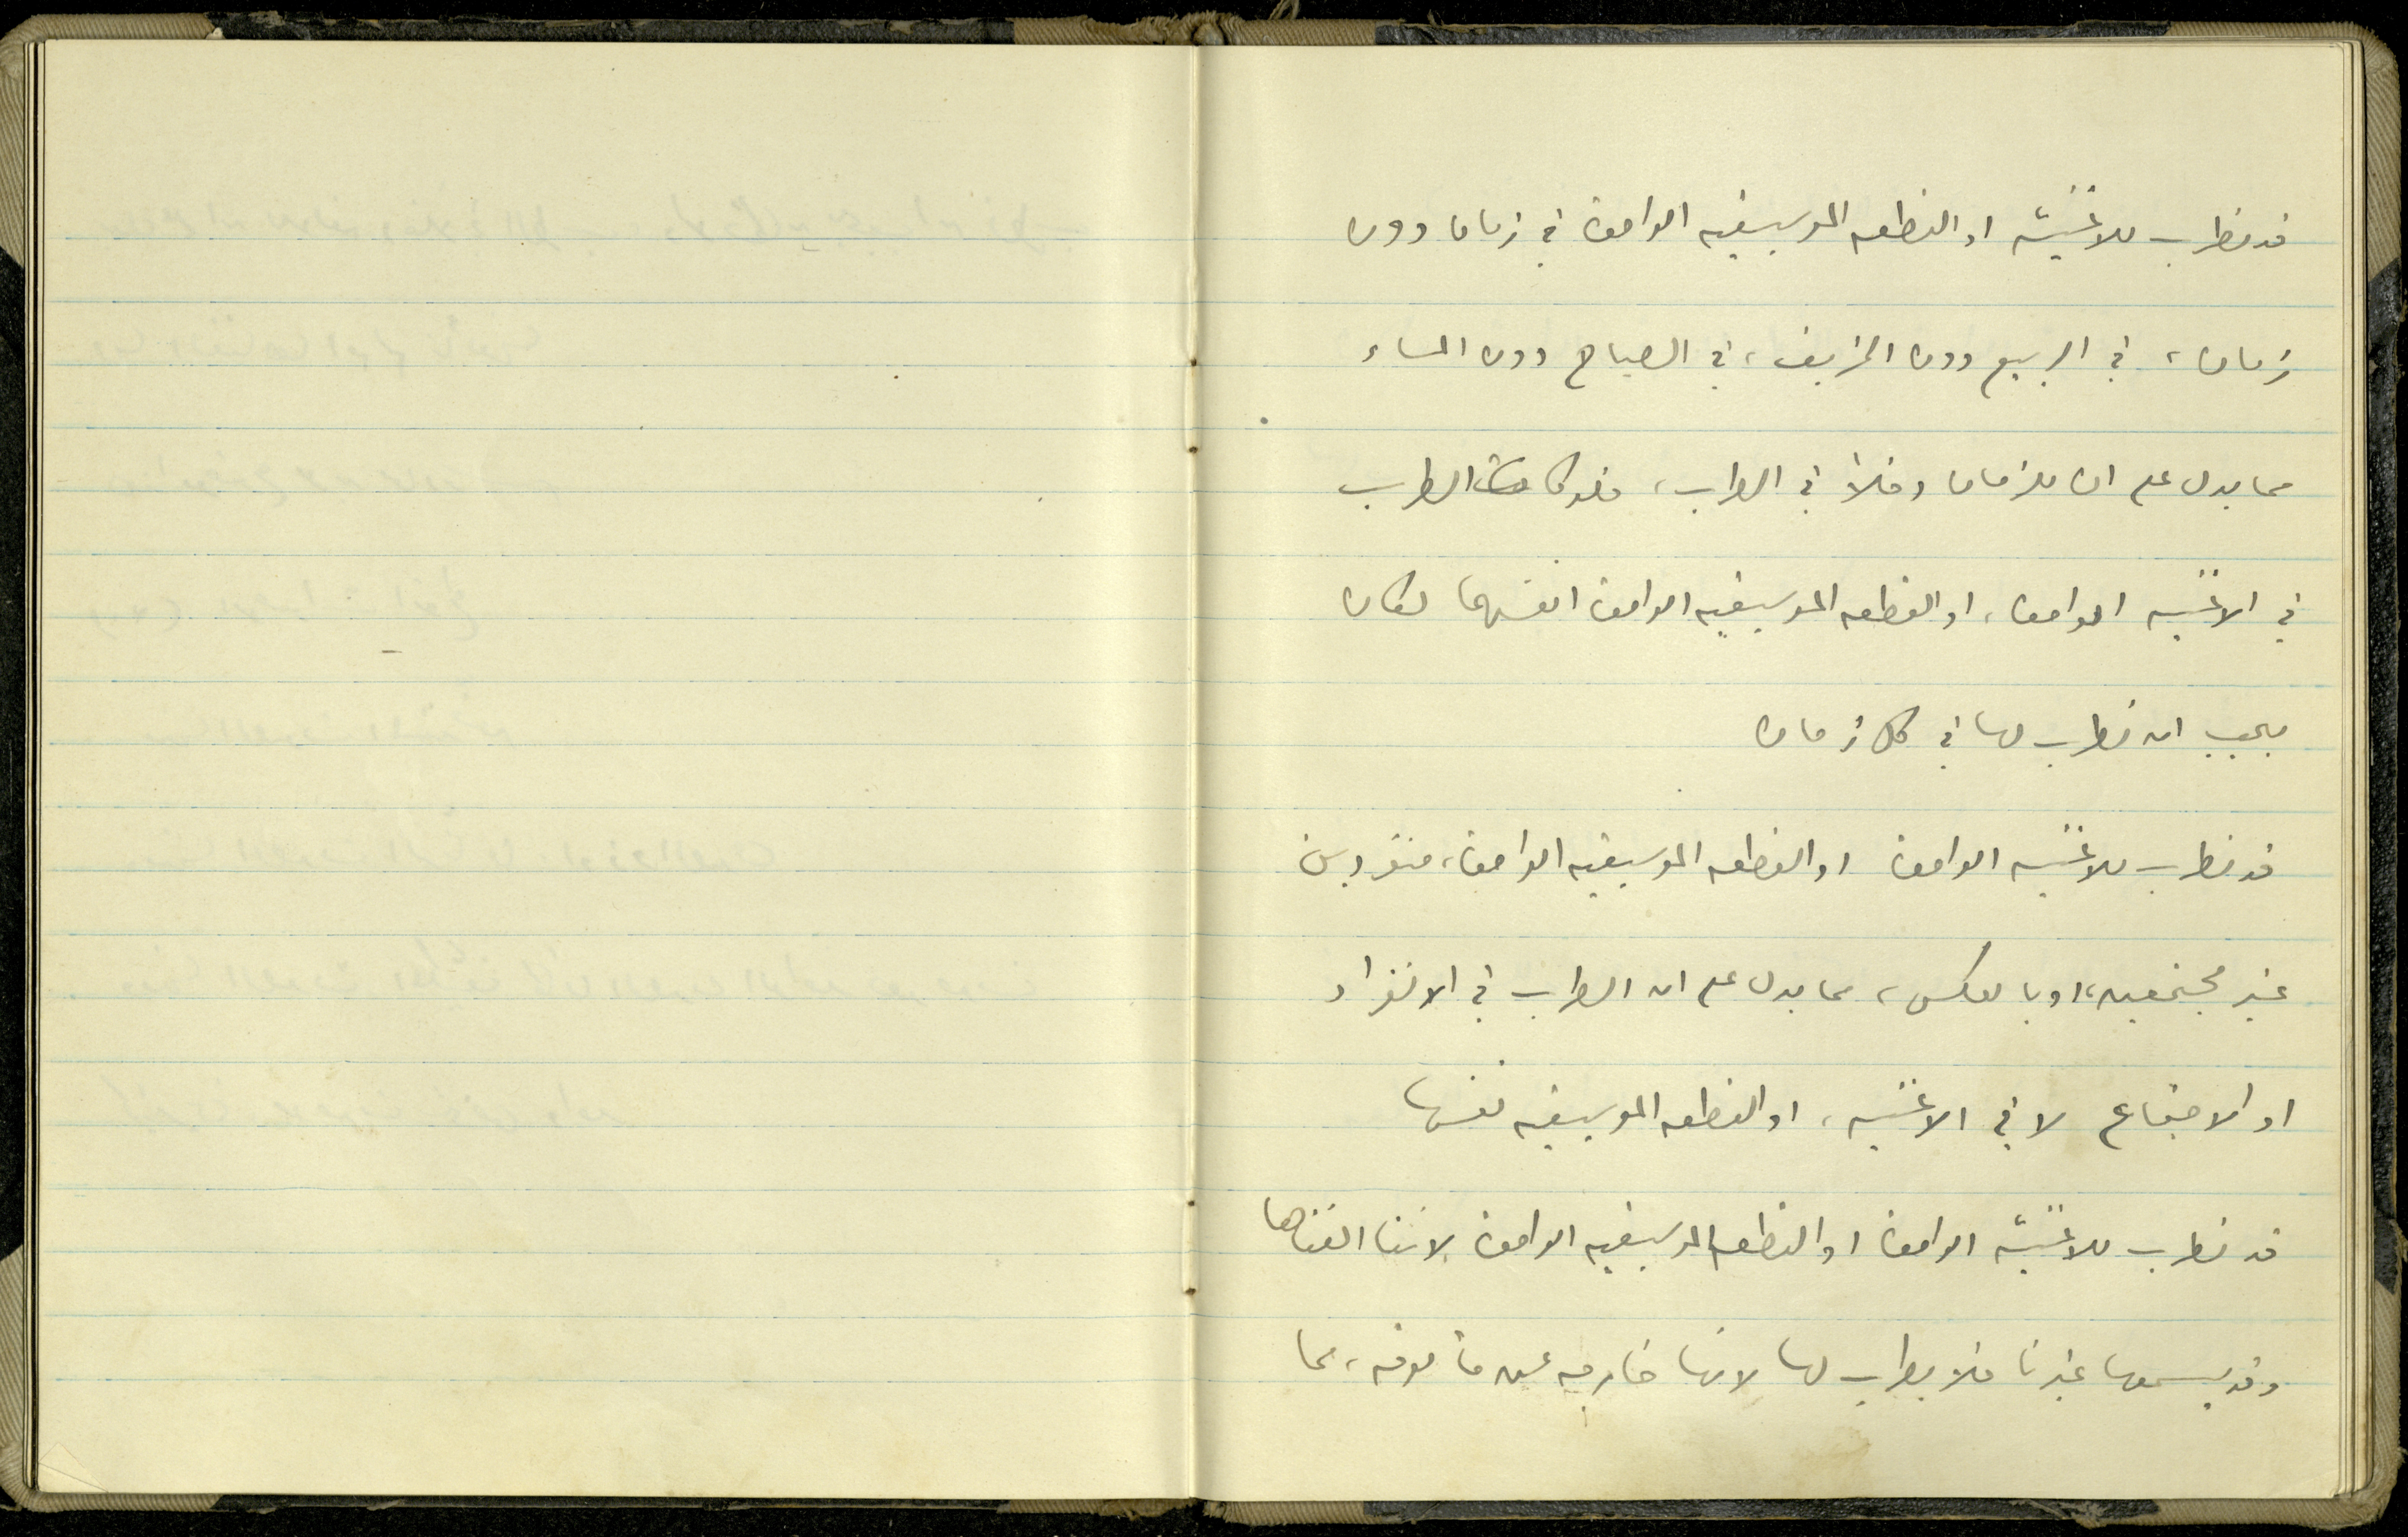 قد نطرب للاغنيّه او القطعه الموسيقيه الواحدة في زمان دون
زمان، في الربيع دون الخريف، في الصباح دون المساء
مما يدل على ان للزمان دخلاً في الطرب، فلو كان الطرب
في الاغنيه الواحدة، او القطعه الموسيقيه الواحدة انفسهما لكان
يجب ان نطرب لها في كل زمان
قد نطرب للاغنيه الواحدة او القطعه الموسيقيه الواحدة، منفردين
غير مجتمعين، او بالعكس، مما يدل على ان الطرب في الانفراد
او الاجتماع لا في الاغنيه، او القطعه الموسيقيه نفسها
قد نطرب للاغنيّه الواحدة او القطعه الموسيقيه الواحدة لاننا الفناها
وقد يسمعها غيرنا فلا يطرب لها لانها خارجه عن مألوفه، مما